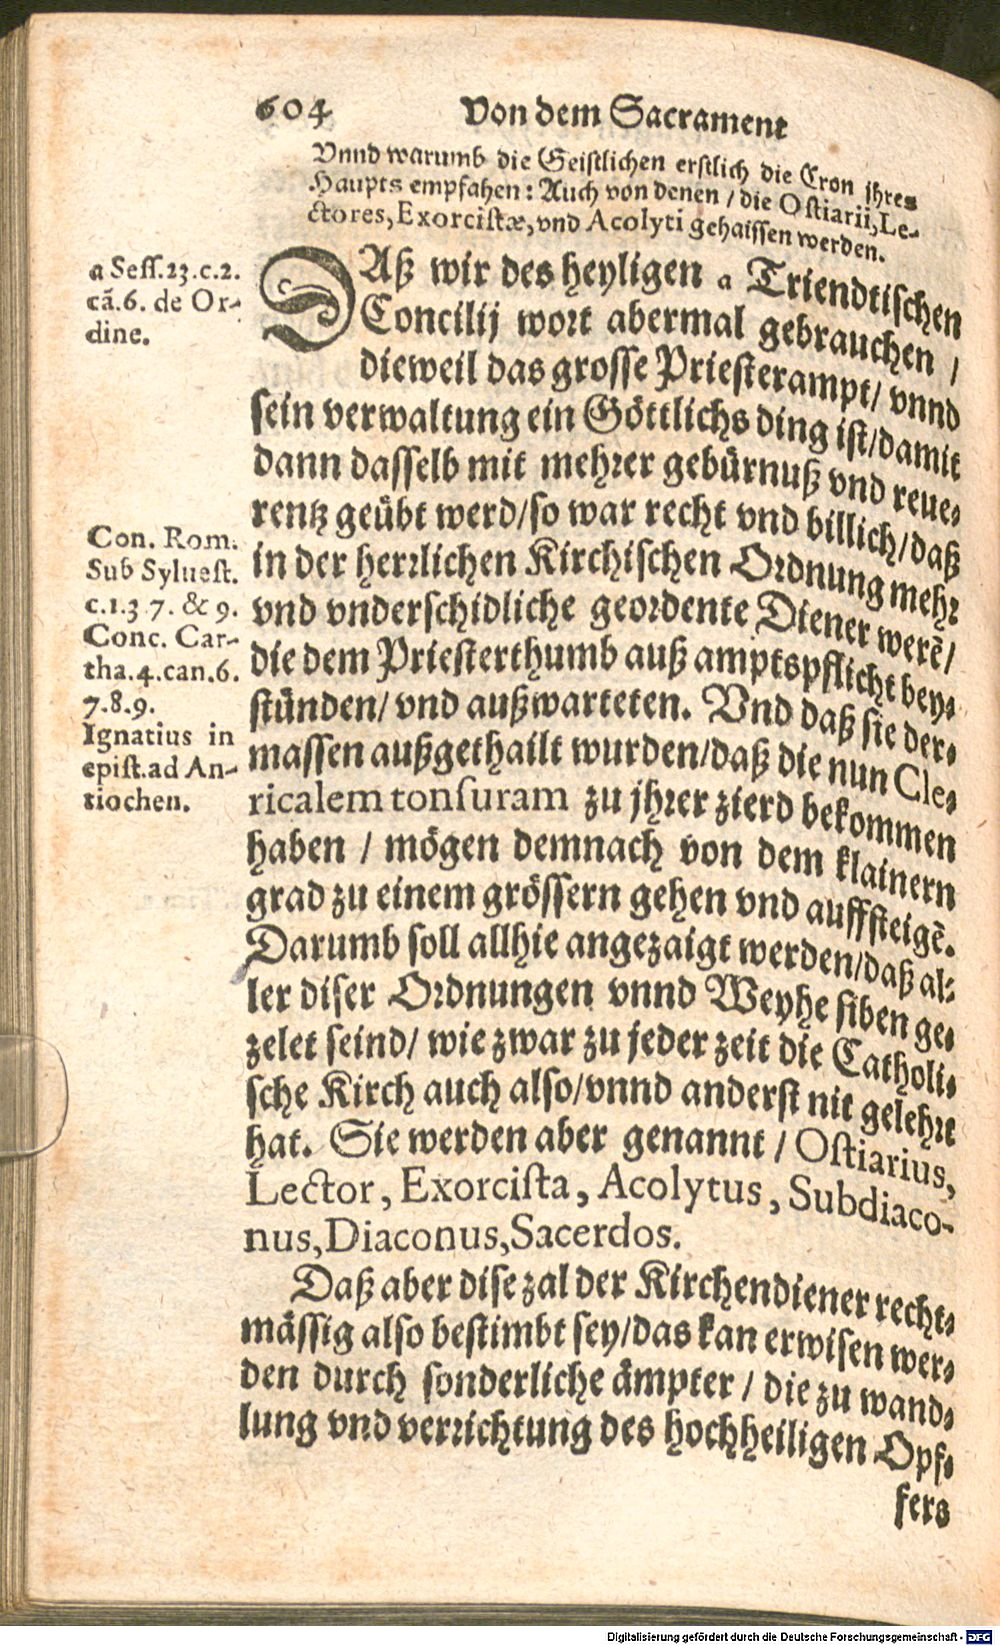 604 Von dem Sacrament
Vnnd warumb die Geistlichen erstlich die Cron jhres
Haupts empfahen: Auch von denen / die Ostiarii, Le-
ctores, Exorcistæ, vnd Acolyti gehaissen werden.
a Sess. 23. c. 2.
cã. 6. de Or-
dine.
DAß wir des heyligen a Triendtischen
Concilij wort abermal gebrauchen /
dieweil das grosse Priesterampt / vnnd
sein verwaltung ein Göttlichs ding ist / damit
dann dasselb mit mehrer gebürnuß vnd reue-
rentz geübt werd / so war recht vnd billich / daß
in der herrlichen Kirchischen Ordnung mehr
vnd vnderschidliche geordente Diener werẽ /
die dem Priesterthumb auß amptspflicht bey-
stünden / vnd außwarteten. Vnd daß sie der-
massen außgethailt wurden / daß die nun Cle-
ricalem tonsuram zu jhrer zierd bekommen
haben / mögen demnach von dem klainern
grad zu einem grössern gehen vnd auffsteigẽ.
Darumb soll allhie angezaigt werden / daß al-
ler diser Ordnungen vnnd Weyhe siben ge-
zelet seind / wie zwar zu jeder zeit die Catholi-
sche Kirch auch also / vnnd anderst nit gelehrt
hat. Sie werden aber genannt / Ostiarius,
Lector, Exorcista, Acolytus, Subdiaco-
nus, Diaconus, Sacerdos.
Con. Rom.
Sub Syluest.
c. 1. 3 7. & 9.
Conc. Car-
tha. 4. can. 6.
7. 8. 9.
Ignatius in
epist. ad An-
tiochen.
Daß aber dise zal der Kirchendiener recht-
mässig also bestimbt sey / das kan erwisen wer-
den durch sonderliche ämpter / die zu wand-
lung vnd verrichtung des hochheiligen Opf-
fers
Digitalisierung gefördert durch die Deutsche Forschungsgemeinschaft - DFG